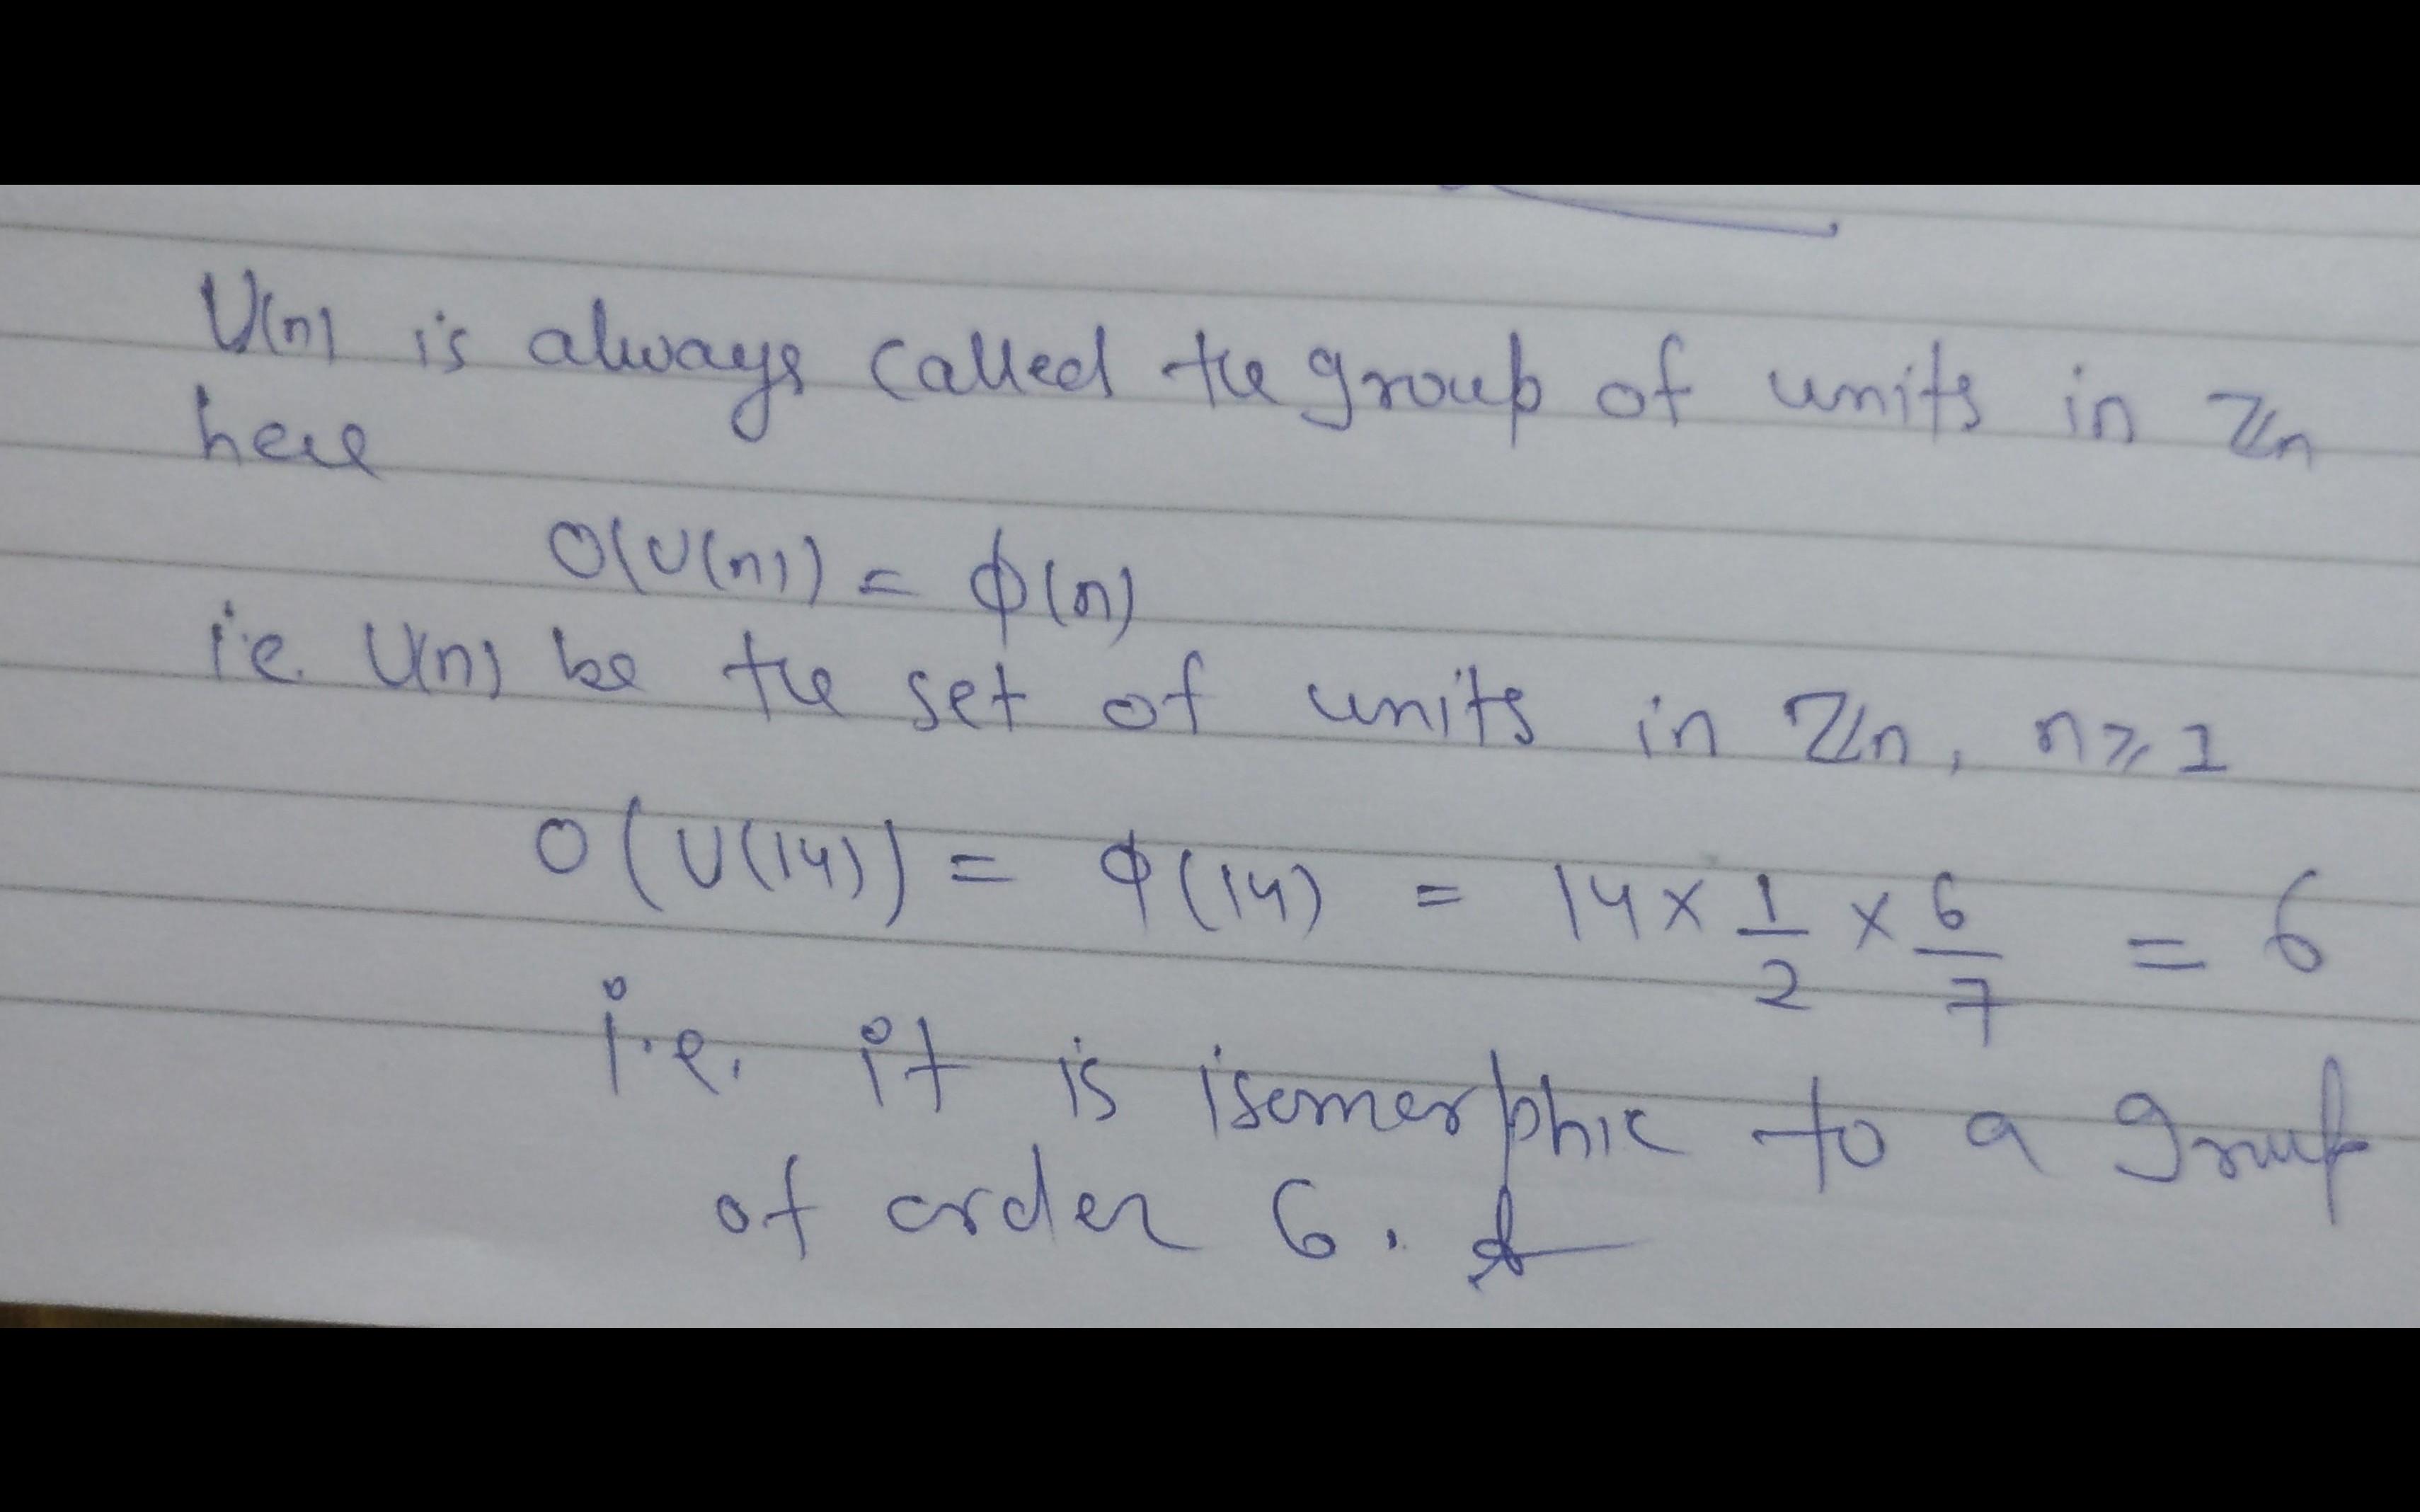 U(n) is always called the group of units in ℤn
here
O(U(n)) = ϕ(n)
i.e. U(n) be the set of units in ℤn, n ⩾ 1
O(U(14)) = ϕ(14) = 14 × 1/2 × 6/7 = 6
i.e. it is isomorphic to a group
of order 6.